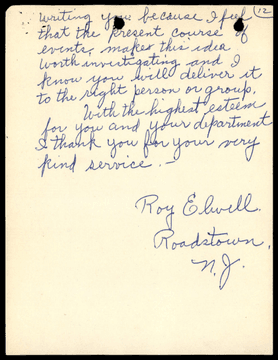 12
writing you because I feel
that the present course of
events, makes this idea
worth investigating and I
know you will deliver it
to the right person or group.
With the highest esteem
for you and your department
I thank you for your very
kind service.
Roy Elwell.
Roadstown,
N.J.